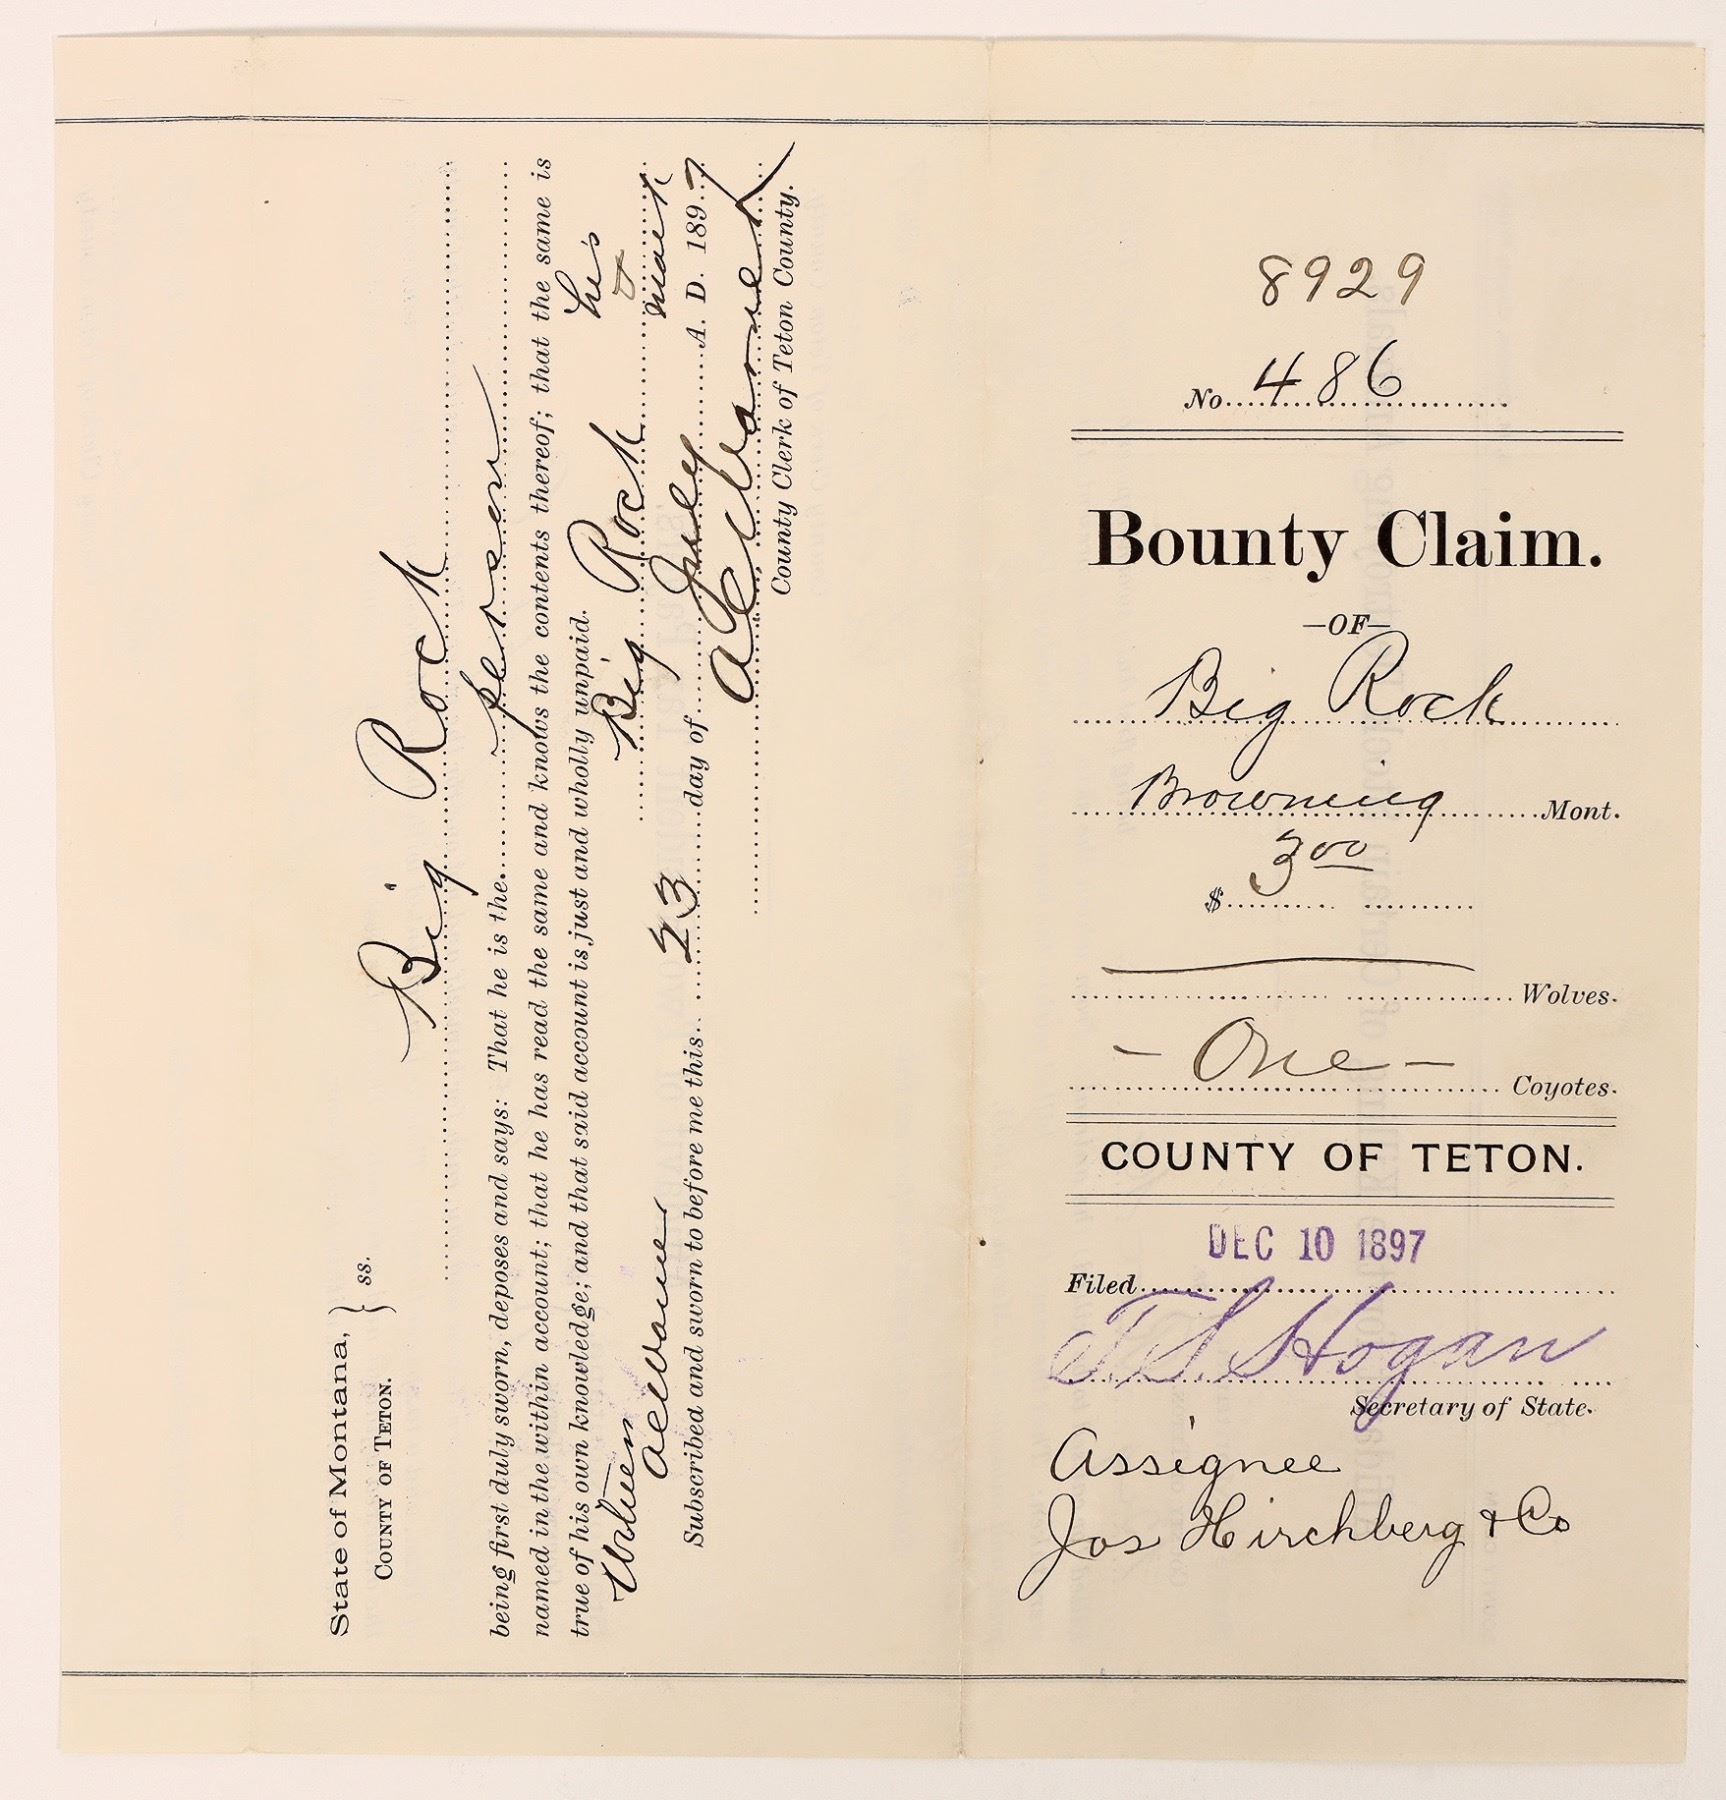 State of Montana,
COUNTY OF TETON.
} ss.
Big Rock
being first duly sworn, deposes and says: That he is the person
named in the within account; that he has read the same and knows the contents thereof; that the same is
true of his own knowledge; and that said account is just and wholly unpaid.
his
Big Rock
mark
Subscribed and sworn to before me this 23 day of July A. D. 1897
County Clerk of Teton County.
8929
No 486
Bounty Claim.
—OF—
Big Rock
Browning Mont.
$ 3 00
Wolves.
- One - Coyotes.
COUNTY OF TETON.
DEC 10 1897
Filed
T. S. Hogan
Secretary of State.
Assignee
Jos Hirchberg & Co